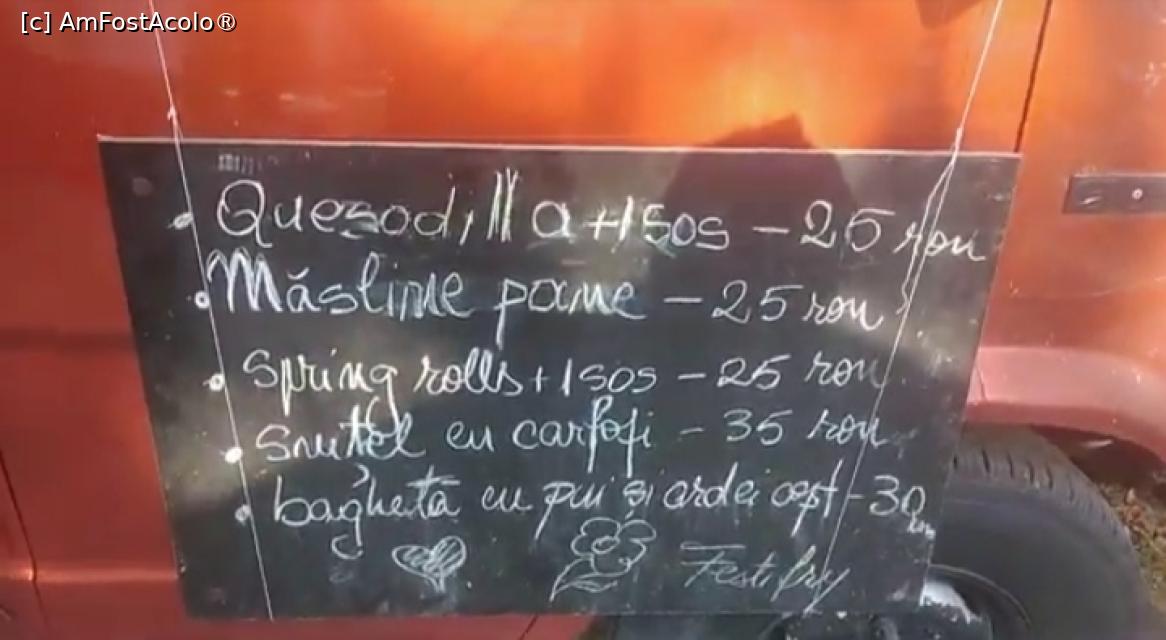 [c] AmFostAcolo®
Quesadilla+1sos – 25 ron
Măsline pane – 25 ron
Spring rolls+1sos – 25 ron
Snițel cu cartofi – 35 ron
baghetă cu pui și ardei copt – 30
Festifry